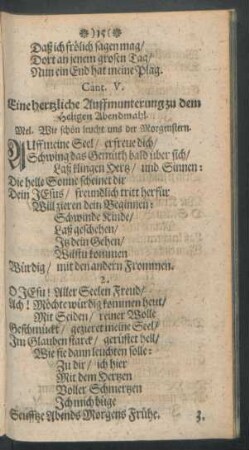 )15(
Daß ich frölich sagen mag/
Dort an jenem grossen Tag/
Nun ein End hat meine Plag.
Cant. V.
Eine hertzliche Auffmunterung zu dem
Heiligen Abendmahl.
Mel. Wie schön leucht uns der Morgenstern.
AUff meine Seel/ erfreue dich/
Schwing das Gemüth bald über sich/
Laß klingen Hertz/ und Sinnen:
Die helle Sonne scheinet dir
Dein JEsus/ freundlich tritt herfür
Will zieren dein Beginnen:
Schwinde Kinde/
Laß geschehen/
In dein Gehen/
Wilstu kommen
Würdig/ mit den andern Frommen.
2.
O JEsu! Aller Seelen Freud/
Ach! Möchte würdig kommen heut/
Mit Seiden/ reiner Wolle
Geschmückt/ gezieret meine Seel/
Im Glauben starck/ gerüstet heil/
Wie sie dann leuchten solle:
Zu dir/ ich hier
Mit dem Hertzen
Voller Schmertzen
Ich mich büge
Seufftze Abends Morgens Frühe. 3.